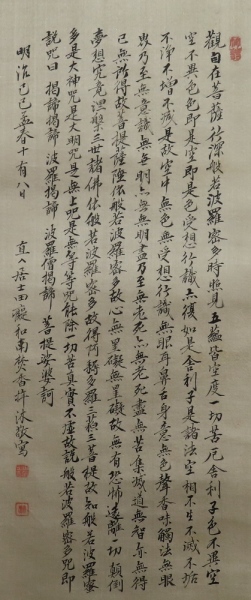 觀自在菩薩行深般若波羅蜜多時照見五蘊皆空度一切苦厄舍利子色不異空
空不異色色即是空空即是色受想行識亦復如是舍利子是諸法空相不生不滅不垢
不淨不增不減是故空中無色無受想行識無眼耳鼻舌身意無色聲香味觸法無眼
界乃至無意識界無無明亦無無明盡乃至無老死亦無老死盡無苦集滅道無智亦無得
以無所得故菩提薩埵依般若波羅蜜多故心無罣礙無罣礙故無有恐怖遠離一切顛倒
夢想究竟涅槃三世諸佛依般若波羅蜜多故得阿耨多羅三藐三菩提故知般若波羅蜜
多是大神咒是大明咒是無上咒是無等等咒能除一切苦真實不虛故說般若波羅蜜多咒即
說咒曰 揭諦揭諦 波羅揭諦 波羅僧揭諦 菩提娑婆訶
明治己巳孟春十有八日
居士田 和南焚香 沐敬寫